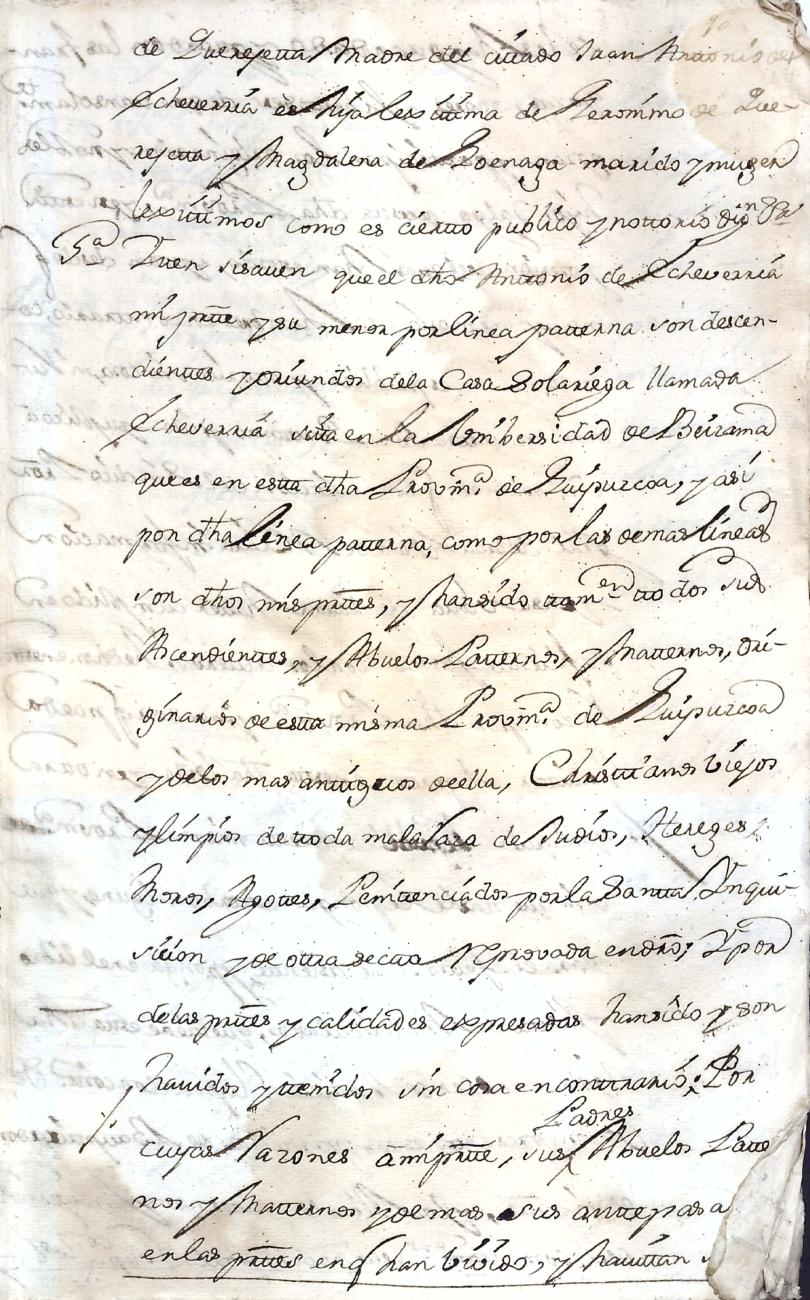 de Querejetta Madre del cittado Juan Anttonio de
Echeverria ês hija lexittima de Geronimo de Que-
rejetta y Magdalena de Loenaga marido y muger
lexittimos como es ciertto publico y nottorio digan &ª
5ª Itten si saven que el dho Anttonio de Echeverria
mi partte y su menor por linea patterna son descen-
dienttes y oriundos de la Casa Solariega llamada
Echeverria sitta en la Vnibersidad de Beizama
que es en estta dha Provinª de Guipuzcoa, y asi
por dha linea patterna, como por las demas lineas
son dhos mis parttes, y han sido ttamvⁿ ttodos sus
Ascendienttes, y Abuelos Patternos, y Matternos, ori-
ginarios de estta misma Provinª de Guipuzcoa
y de los mas anttiguos de ella, Christtianos Viejos
y limpios de ttoda mala Raza de Judios, Hereges,
Moros, Agottes, Penittenciados por la Santta Ynqui-
sicion y de ottra sectta Reprovada en dro; Y por
de las parttes y calidades expresadas han sido y son
havidos y ttenidos sin cosa en conttrario; Por
Padres
cuyas Razones a mi partte, sus Abuelos Patte
nos y Matternos y demas sus anttepasa
en las parttes en q han Vivido, y havittan